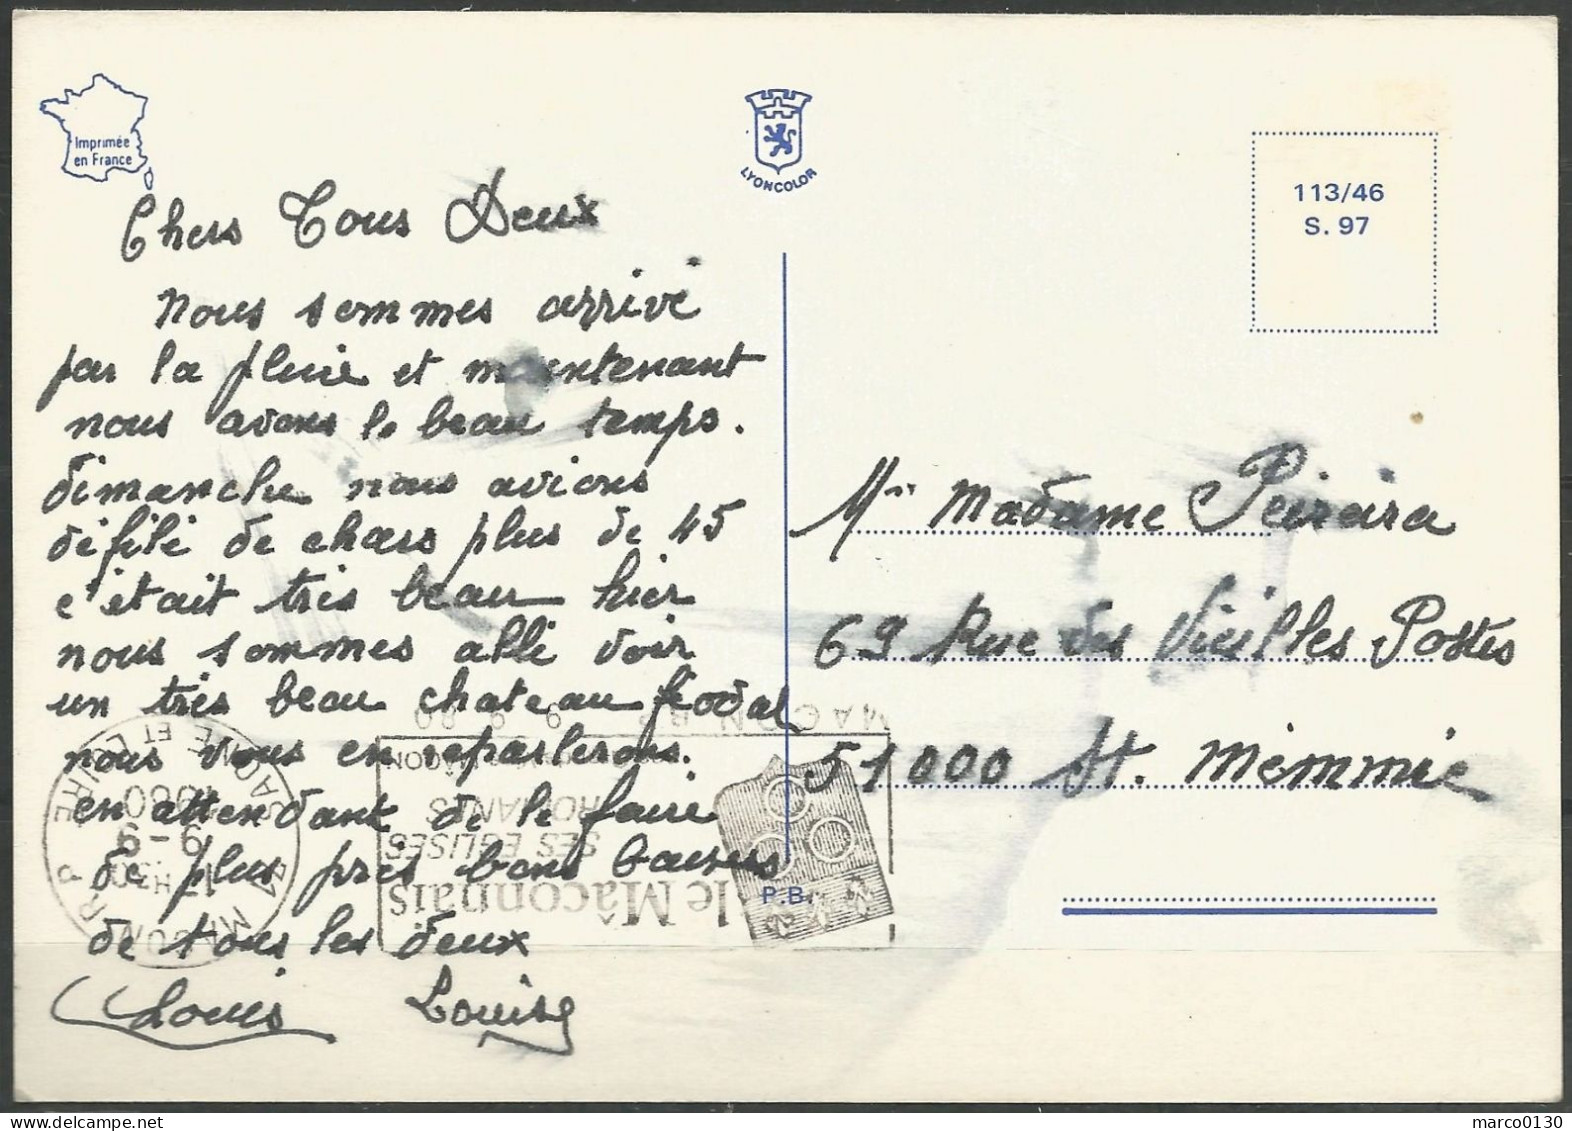 Imprimée
en France
LYONCOLOR
113/46
S. 97
Chers Tous Deux
nous sommes arrivé
par la pluie et maintenant
nous avons le beau temps.
dimanche nous avions
défilé de chars plus de 45
c'était très beau hier
nous sommes allé voir
un très beau chateau féodal
nous vous en reparlerons.
en attendant de le faire
de plus près bons baisers
de tous les deux
Louis Louise
Mr Madame Peireira
69 Rue des Vieilles Postes
51000 St. Memmie
P.B.
MACON R.P. 9 9 80
le Mâconnais
SES EGLISES
ROMANES
71 MACON R P
9-9
1980
SAONE ET LOIRE
marco0130